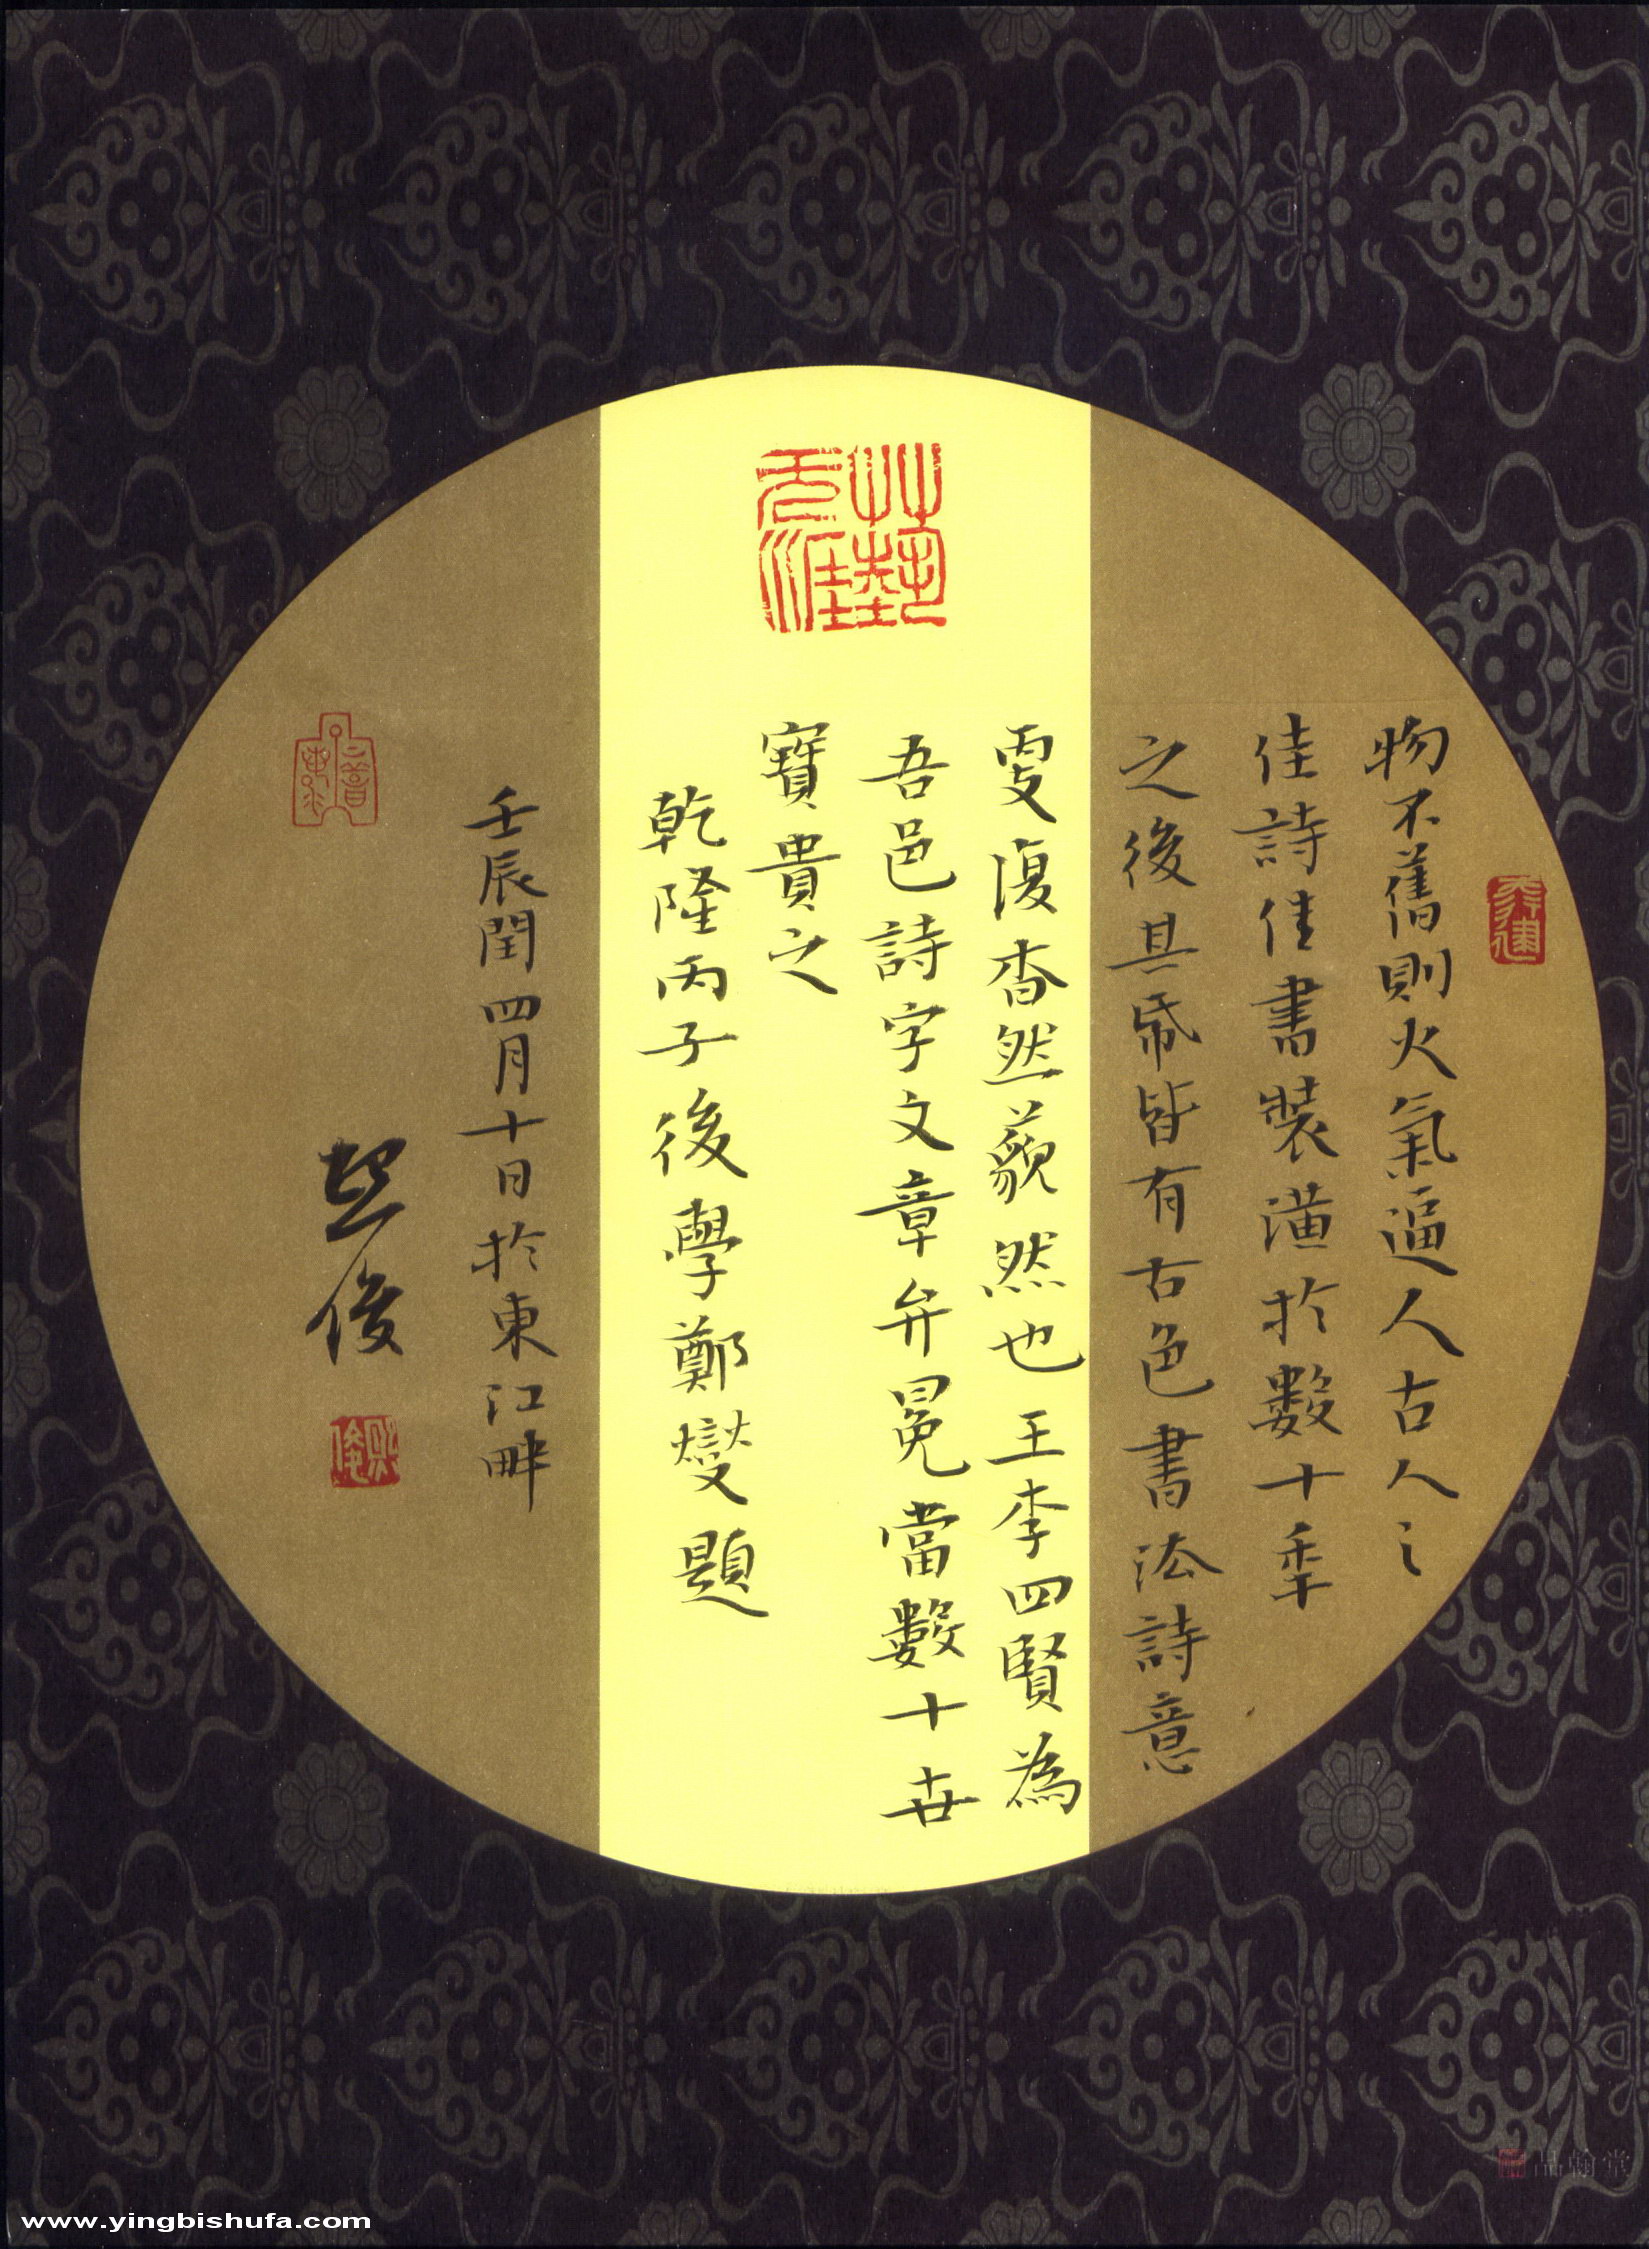 物不舊則火氣逼人古人之
佳詩佳書裝潢於數十年
之後其帋皆有古色書法詩意
更復杳然藐然也王李四賢為
吾邑詩字文章弁冕當數十世
寶貴之
乾隆丙子後學鄭燮題
壬辰閏四月十日於東江畔
熙俊
藝无涯
熙俊
品翰堂
www.yingbishufa.com